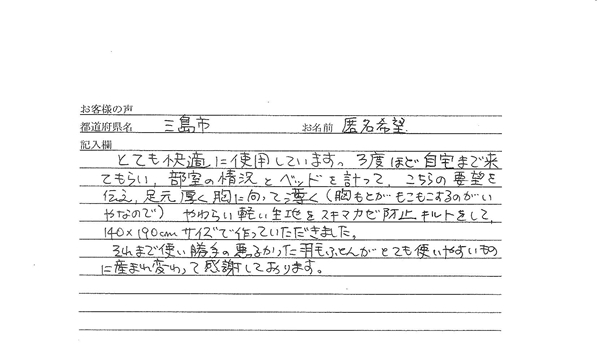 お客様の声
都道府県名 三島市 お名前 匿名希望
記入欄
とても快適に使用しています。3度ほど自宅まで来
てもらい、部室の情況とベッドを計って、こちらの要望を
伝え、足元厚く胸に向って薄く（胸もとがもこもこするのがい
やなので）やわらい軽い生地をスキマカゼ防止キルトをして、
140×190cmサイズで作っていただきました。
それまで使い勝手の悪るかった羽毛ふとんがとても使いやすいもの
に産まれ変わって感謝しております。